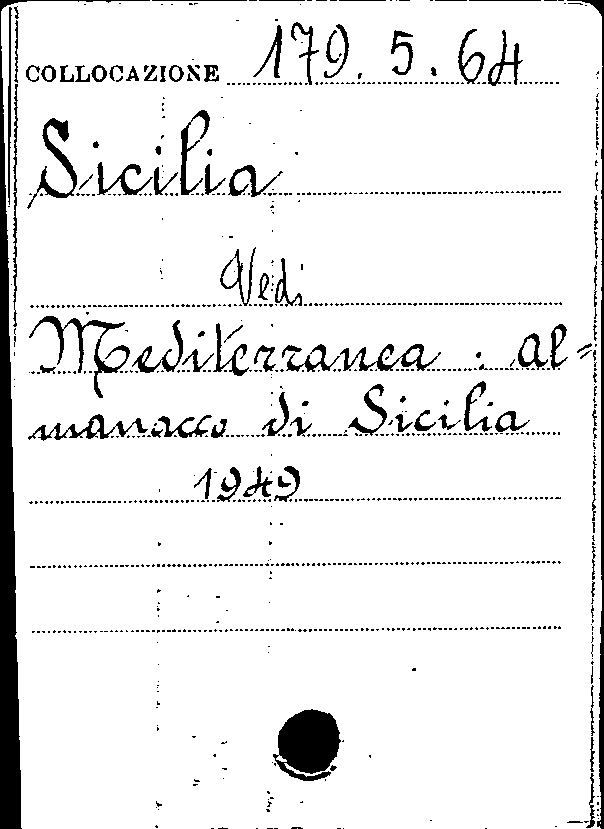 COLLOCAZIONE 179.5.64
Sicilia
Vedi
Mediterranea : al=
manacco di Sicilia
1949